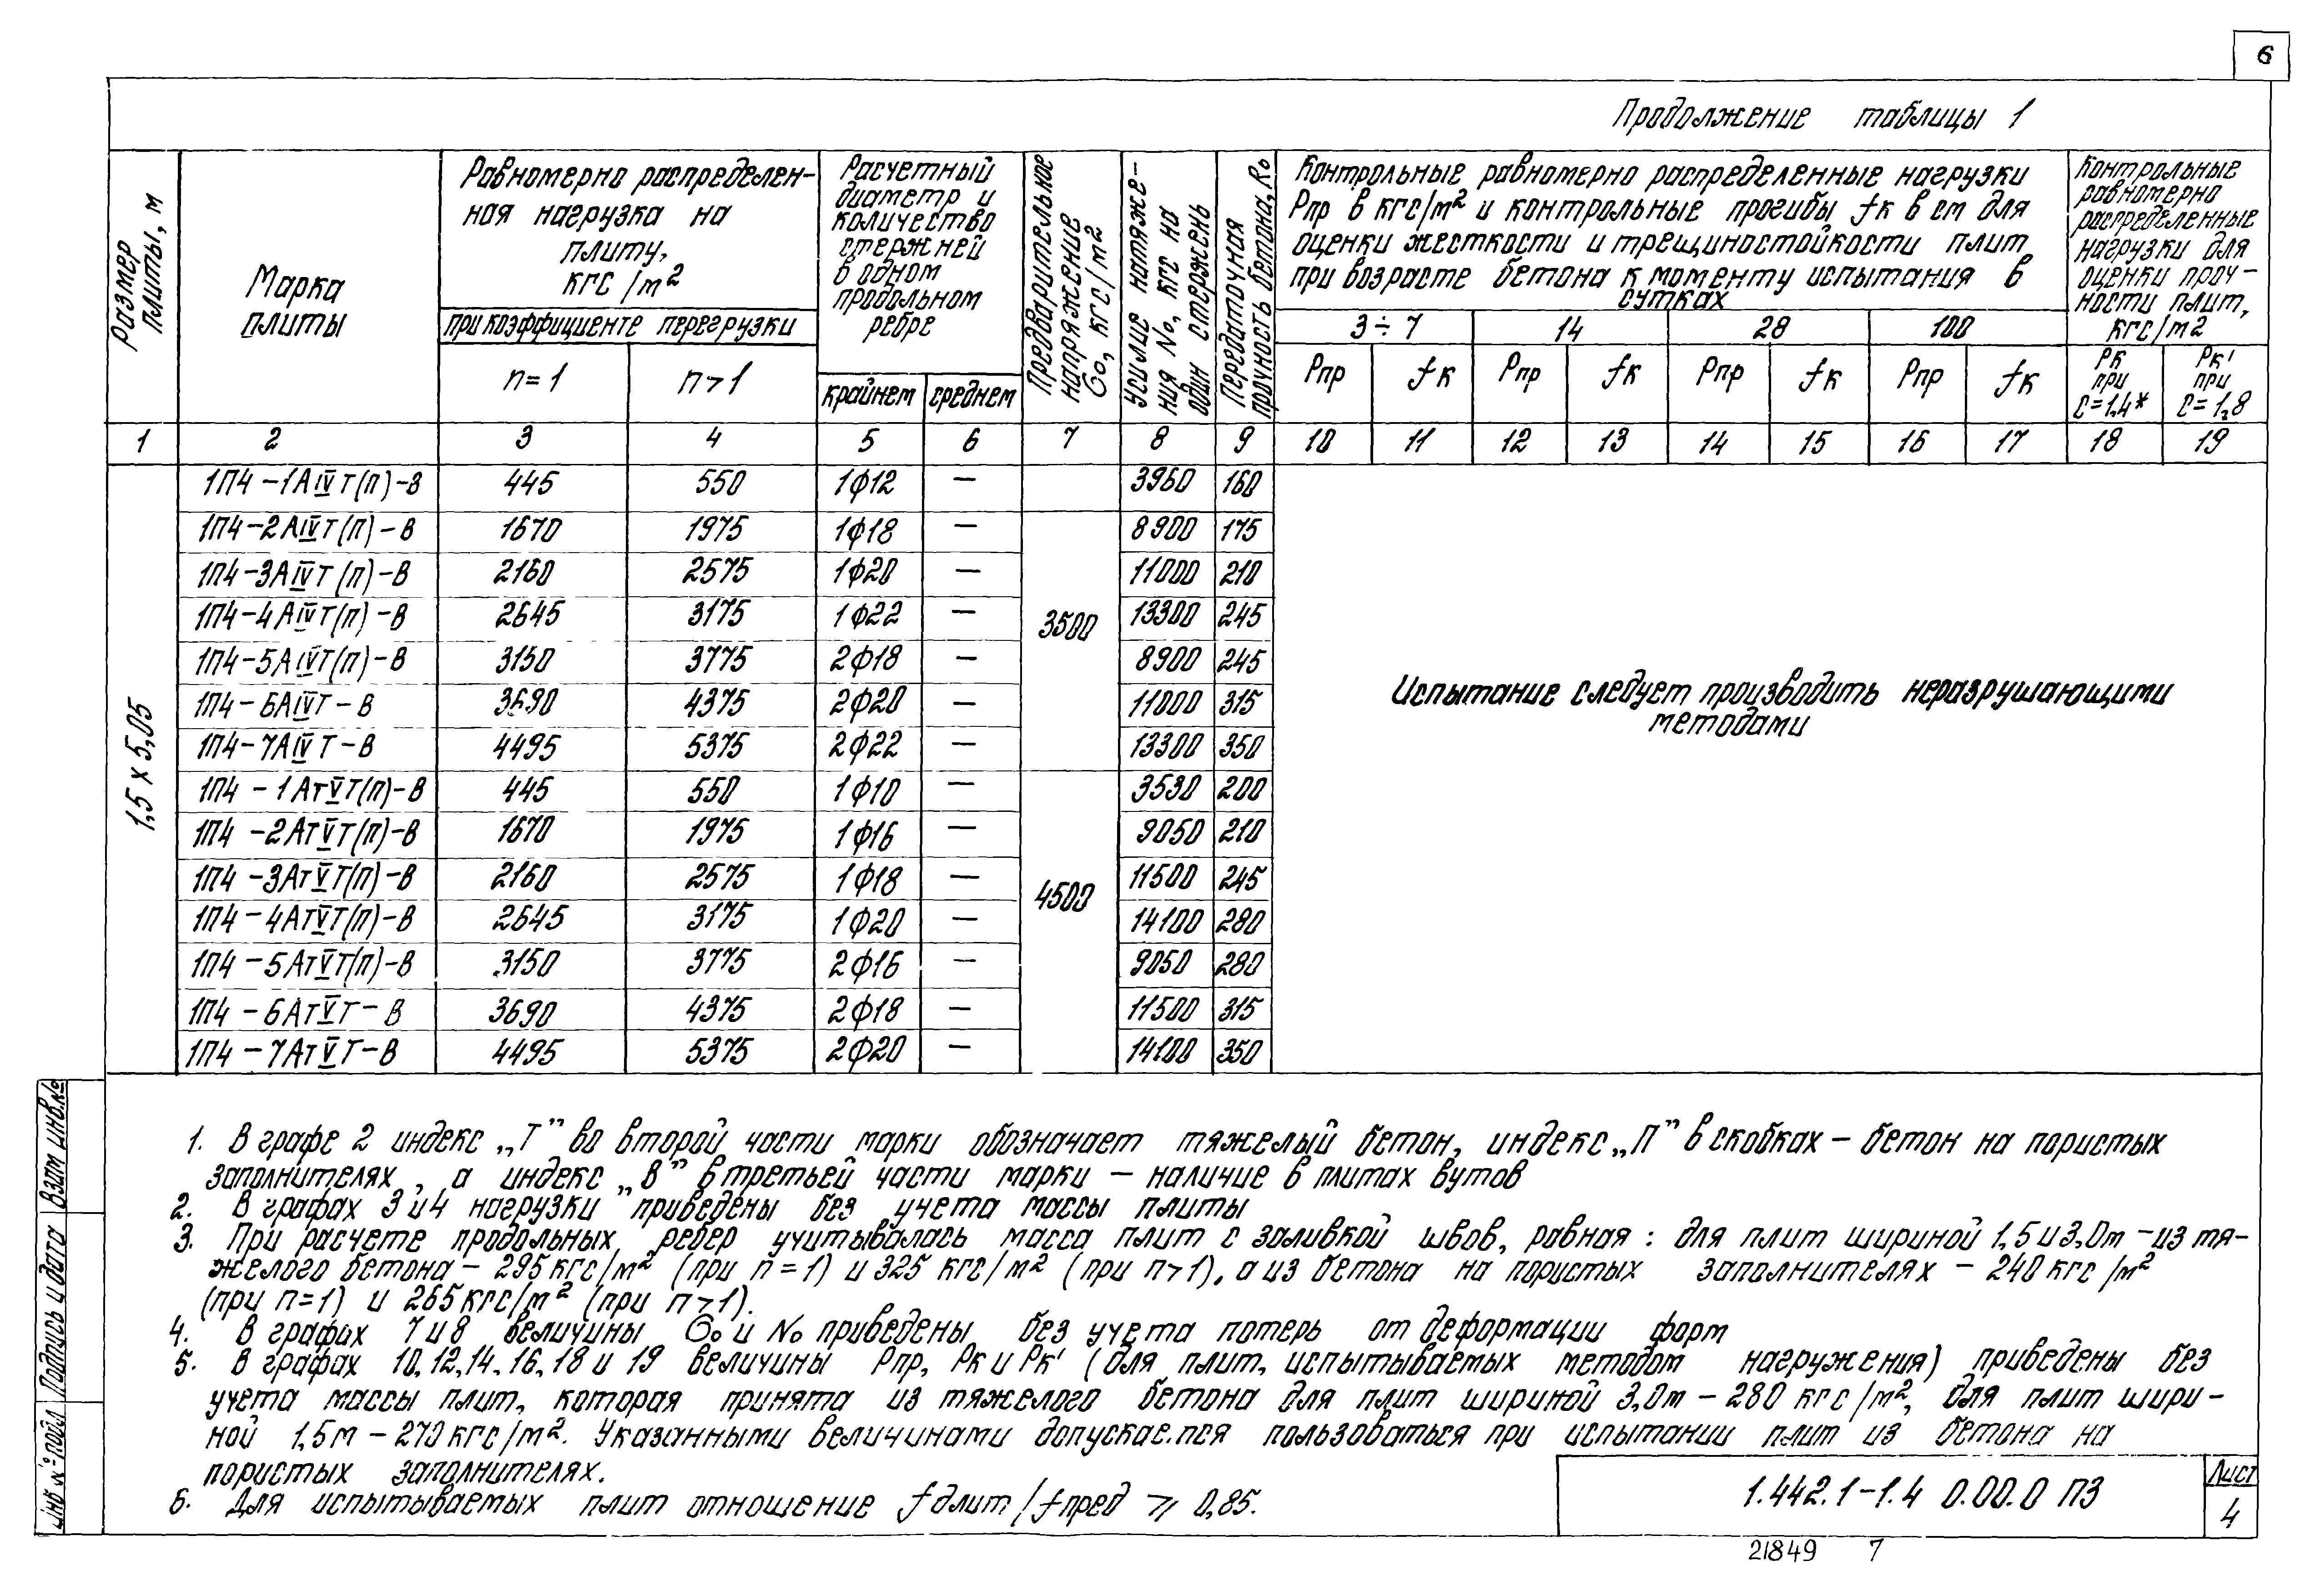 6
Продолжение таблицы 1
Размер плиты, м
Марка плиты
Равномерно распределен-
ная нагрузка на
плиту,
кгс/м²
при коэффициенте перегрузки
n=1 n>1
Расчетный
диаметр и
количество
стержней
в одном
продольном
ребре
крайнем среднем
Предварительное напряжение бо, кгс/м²
Усилие натяже-
ния No, кгс на
один стержень
Передаточная прочность бетона, Ro
Контрольные равномерно распределенные нагрузки
Рпр в кгс/м² и контрольные прогибы fк в см для
оценки жесткости и трещиностойкости плит
при возрасте бетона к моменту испытания в
сутках
3÷7 14 28 100
Рпр fк Рпр fк Рпр fк Рпр fк
Контрольные
равномерно
распределенные
нагрузки для
оценки проч-
ности плит,
кгс/м2
Рк при С=1,4* Рк' при С=1,8
1 2 3 4 5 6 7 8 9 10 11 12 13 14 15 16 17 18 19
1,5 х 5,05
1П4-1АIVТ(П)-В 445 550 1ф12 — 3960 160
1П4-2АIVТ(П)-В 1670 1975 1ф18 — 8900 175
1П4-3АIVТ(П)-В 2160 2575 1ф20 — 11000 210
1П4-4АIVТ(П)-В 2645 3175 1ф22 — 3500 13300 245
1П4-5АIVТ(П)-В 3150 3775 2ф18 — 8900 245
1П4-6АIVТ-В 3690 4375 2ф20 — 11000 315
1П4-7АIVТ-В 4495 5375 2ф22 — 13300 350
1П4-1АтVТ(П)-В 445 550 1ф10 — 3530 200
1П4-2АтVТ(П)-В 1670 1975 1ф16 — 9050 210
1П4-3АтVТ(П)-В 2160 2575 1ф18 — 11500 245
1П4-4АтVТ(П)-В 2645 3175 1ф20 — 4500 14100 280
1П4-5АтVТ(П)-В 3150 3775 2ф16 — 9050 280
1П4-6АтVТ-В 3690 4375 2ф18 — 11500 315
1П4-7АтVТ-В 4495 5375 2ф20 — 14100 350
Испытание следует производить неразрушающими
методами
1. В графе 2 индекс „Т" во второй части марки обозначает тяжелый бетон, индекс „П" в скобках – бетон на пористых
заполнителях, а индекс „В" в третьей части марки – наличие в плитах вутов
2. В графах 3 и 4 нагрузки приведены без учета массы плиты
3. При расчете продольных ребер учитывалась масса плит с заливкой швов, равная: для плит шириной 1,5 и 3,0м – из тя-
желого бетона – 295 кгс/м² (при n=1) и 325 кгс/м² (при n>1), а из бетона на пористых заполнителях – 240 кгс/м²
(при n=1) и 265 кгс/м² (при n>1).
4. В графах 7 и 8 величины бо и No приведены без учета потерь от деформации форм
5. В графах 10,12,14,16,18 и 19 величины Рпр, Рк и Рк' (для плит, испытываемых методом нагружения) приведены без
учета массы плит, которая принята из тяжелого бетона для плит шириной 3,0м – 280 кгс/м², для плит шири-
ной 1,5м – 270 кгс/м². Указанными величинами допускается пользоваться при испытании плит из бетона на
пористых заполнителях.
6. Для испытываемых плит отношение fдлит/fпред ⩾ 0,85.
Взам инв.№
Подпись и дата
Инв № подл
1.442.1-1.4 0.00.0 ПЗ
Лист
4
21849 7